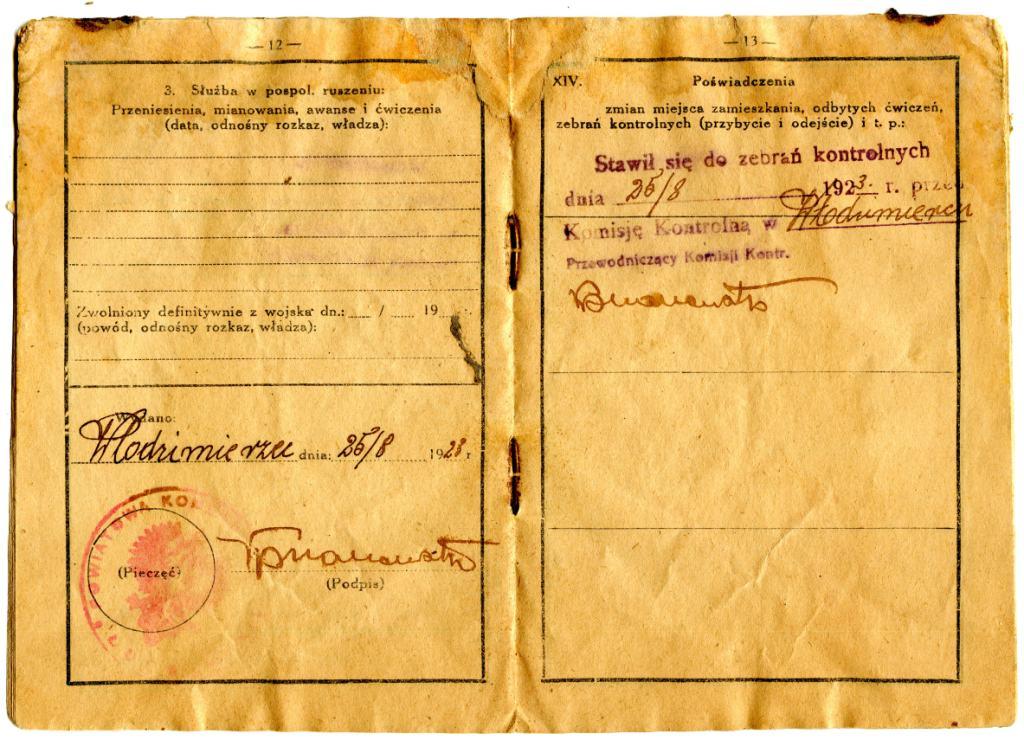 — 12 —
3. Służba w pospol. ruszeniu:
Przeniesienia, mianowania, awanse i ćwiczenia
(data, odnośny rozkaz, władza):
Zwolniony definitywnie z wojska dn.: / 19
(powód, odnośny rozkaz, władza):
Wydano:
Włodzimierzec dnia: 25/8 1923 r
POWIATOWA KO
(Pieczęć)
(Podpis)
— 13 —
XIV. Poświadczenia
zmian miejsca zamieszkania, odbytych ćwiczeń,
zebrań kontrolnych (przybycie i odejście) i t. p.:
Stawił się do zebrań kontrolnych
dnia 25/8 1923. r. przed
Komisję Kontrolną w
Przewodniczący Komisji Kontr.